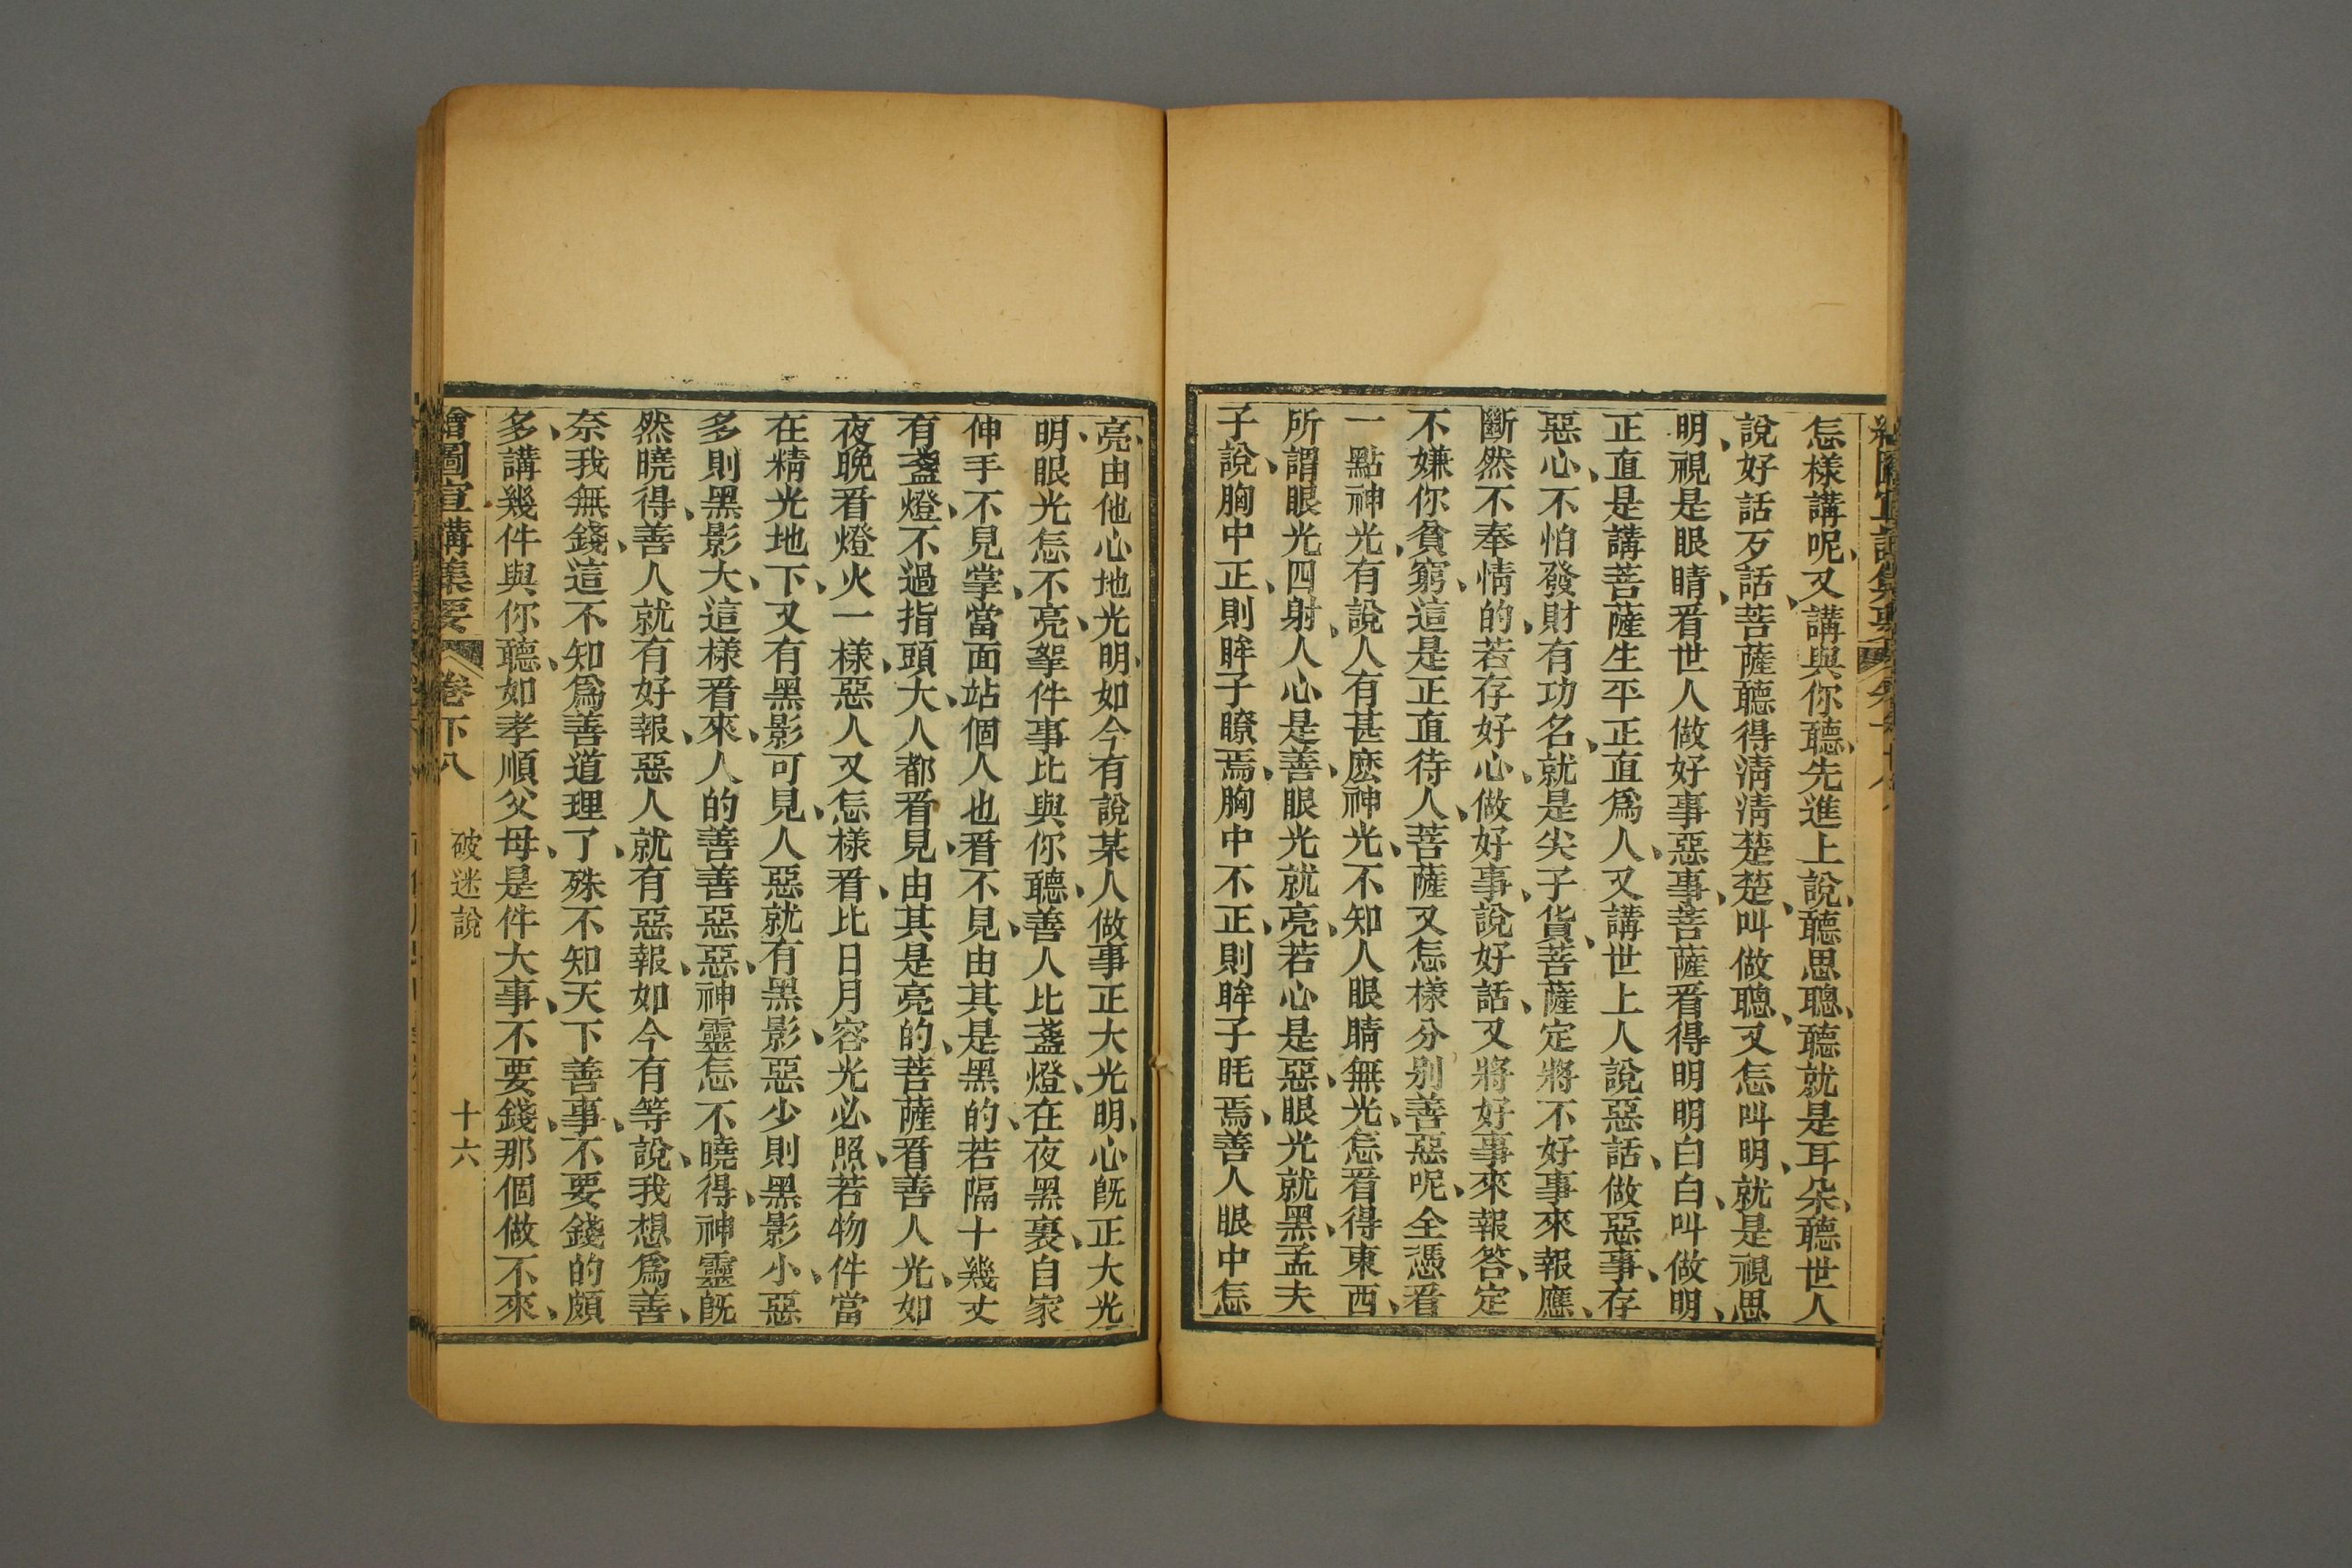 怎樣講呢、又講與你聽、先進上說、聽思聰、聽就是耳朵、聽世人
說好話歹話、菩薩聽得淸淸楚楚、叫做聰、又怎叫明、就是視思
明、視是眼睛、看世人做好事惡事、菩薩看得明明白白、叫做明、
正直是講菩薩生平正直爲人、又講世上人說惡話、做惡事、存
惡心、不怕發財有功名、就是尖子貨、菩薩定將不好事來報應、
斷然不奉情的、若存好心、做好事、說好話、又將好事來報答、定
不嫌你貧窮、這是正直待人、菩薩又怎樣分別善惡呢、全憑看
一點神光、有說人有甚麽神光、不知人眼睛無光、怎看得東西、
所謂眼光四射、人心是善、眼光就亮、若心是惡、眼光就黑、孟夫
子說、胸中正、則眸子瞭焉、胸中不正、則眸子眊焉、善人眼中怎
亮、由他心地光明、如今有說某人做事正大光明、心旣正大光
明、眼光怎不亮、挐件事比與你聽、善人比盞燈、在夜黑裏、自家
伸手不見掌、當面站個人也看不見、由其是黑的、若隔十幾丈
有盞燈、不過指頭大、人都看見、由其是亮的、菩薩看善人光、如
夜晚看燈火一樣、惡人又怎樣看、比日月容光必照、若物件當
在精光地下、又有黑影可見、人惡就有黑影、惡少則黑影小、惡
多則黑影大、這樣看來、人的善善惡惡、神靈怎不曉得、神靈旣
然曉得、善人就有好報、惡人就有惡報、如今有等說、我想爲善、
奈我無錢、這不知爲善道理了、殊不知天下善事、不要錢的頗
多、講幾件與你聽、如孝順父母、是件大事、不要錢、那個做不來、
繪圖宣講集要 卷下八 破迷說 十六